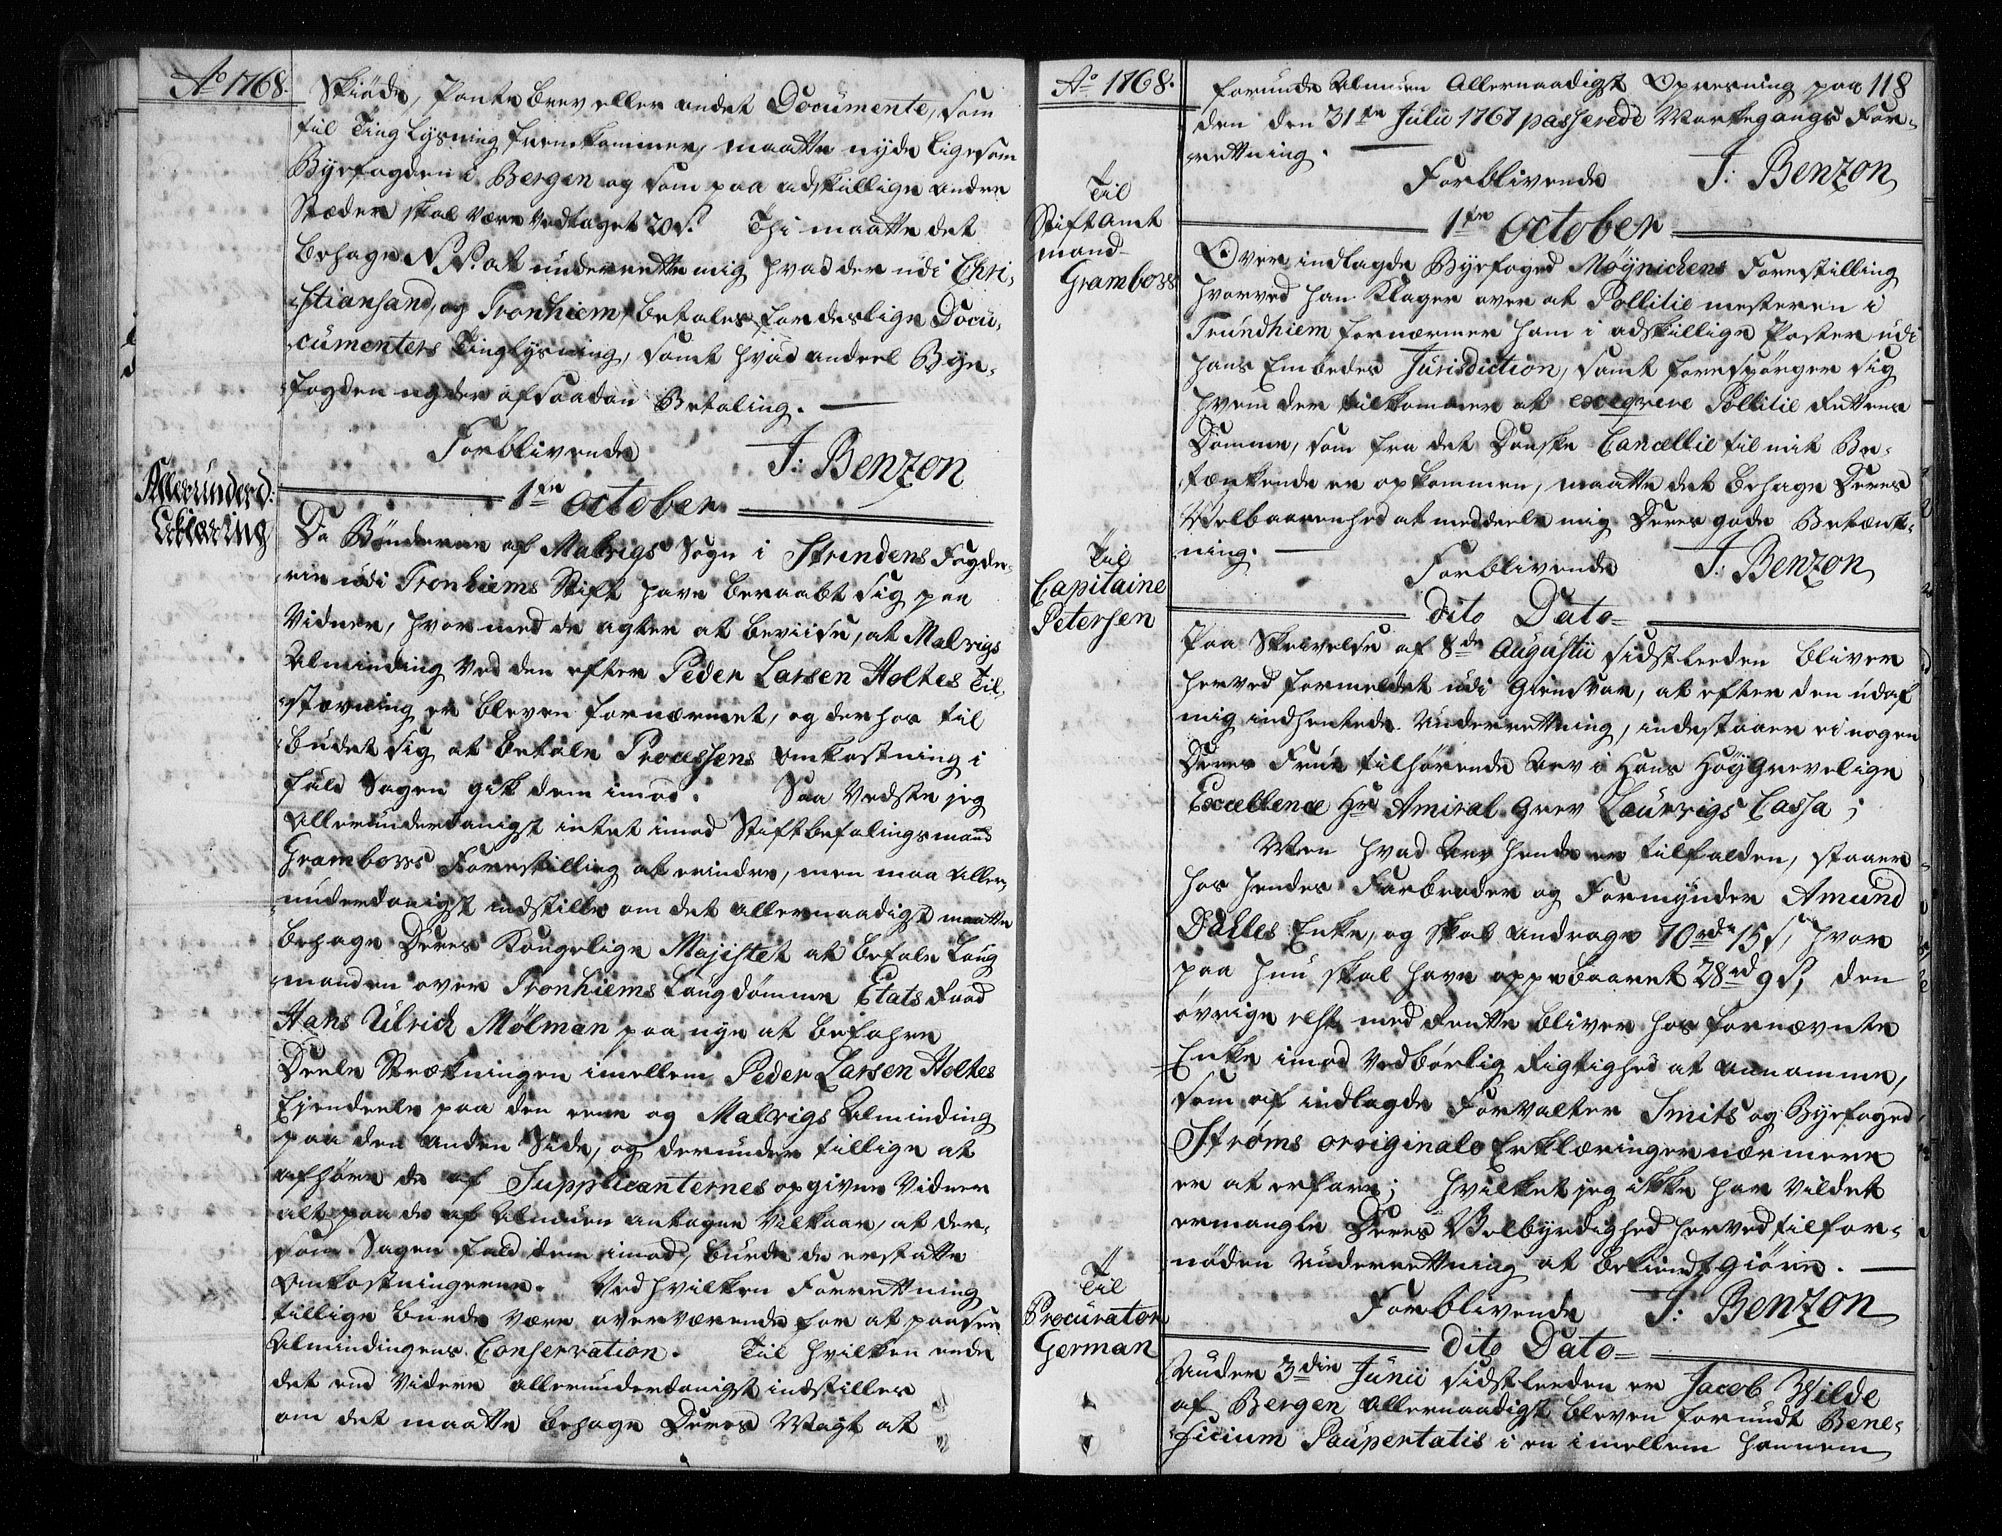 Ao 1768.
Skiøde, Pante brev eller andet Documente, som
til Ting Lysning fremkommer, maatte nyde ligesom
Byefogden i Bergen og som paa adskillige andre
Stæder skal være vedtaget 20 s. Thi maatte det
behage N N. at underrette mig hvad der udi Chri-
stiansand, og Tronhiem, betales for deslige Docu-
cumenters Tinglysning, samt hvad andeel Bye-
fogden nyder af saadan Betaling.
Forblivende J: Benzon
1te October
Allerunderd:
Erklæring
Da Bønderne af Malvigs Sogn i Strindens Fogde-
rie udi Tronhiems Stift have beraabt sig paa
Vidner, hvormed de agter at beviise, at Malvigs
Alminding ved den efter Peder Larsen Holtes Til-
stævning er bleven fornærmet, og derhos til
budet sig at betale Processens Omkostning i
fald Sagen gik dem imod. Saa vedste jeg
Allerunderdanigst intet imod Stiftbefalingsmand
Grambows Forestilling at erindre, men maa aller-
underdanigst indstille om det allernaadigst maatte
behage Deres Kongelige Majistet at befale Laug
manden over Tronhiems Laugdømme Etats Raad
Hans Ulrich Mølman paa nye at befahre
Deele Strækningen imellem Peder Larsen Holtes
Ejendeele paa den eene og Malvigs Alminding
paa den anden Side, og derunder tillige at
afhøre de af Supplicanternes opgivne Vidner
alt paa de af Almuen antagne Vilkaar, at der-
som Sagen fald dem imod, burde de erstatte
Omkostningerne. Ved hvilken Forrettning
tillige burde være overværende for at paasee
Almindingens Conservation. Til hvilken ende
det end videre allerunderdanigst indstilles
om det maatte behage Deres Mayt at
Ao 1768.
118
forunde Almuen Allernaadigst Opreysning paa
den den 31te Julii 1767 passerede Markegangs For-
rettning.
Forblivende J: Benzon
1te October
Til
Stiftamt
mand
Grambows
Over indlagde Byefoged Møynichens Forestilling
hvorved han klager over at Pollitie mesteren i
Trundhiem fornærmer ham i adskillige Poster udi
hans Embedes Jurisdiction, samt forespørger sig
hvem der tilkommer at exeqvere Pollitie Rettens
Domme, som fra det Danske Cancellie til mit Be-
tænkende er opkommen, maatte det behage Deres
Velbaarenhed at meddeele mig Deres gode Betænk-
ning.
Forblivende J: Benzon
dito Dato
Til
Capitaine
Petersen
Paa Skrivelse af 8de Augustii sidstleeden bliver
herved formeldet udi Giensvar, at efter den udaf
mig indhentede Underrettning, indestaaer ei nogen
Deres Frue tilhørende Arv i Hans HøyGrevelige
Excellence Hr Amiral Grev Laurvigs Cassa;
Men hvad Arv hende er tilfalden, staaer
hos hendes Farbroder og Formynder Amund
Dalles Enke, og skal andrage 70 rd 15 s, hvor
paa hun skal have oppebaaret 28 rd 9 s, den
øvrige Rest med Rentte bliver hos fornævnte
Enke imod vedbørlig Rigtighed at annamme,
som af indlagde Forvalter Smits og Byefoged
Strøms originale Erklæringer nærmere
er at erfare; hvilket jeg ikke har vildet
ermangle Deres Velbyrdighed herved til for-
nøden underrettning at bekiendtgiøre.
Forblivende J: Benzon
dito Dato
Til
Procurator
German
Under 3die Junii sidstleeden er Jacob Wilde
af Bergen allernaadigst bleven forundt Bene-
ficium Paupertatis i en imellem hannem